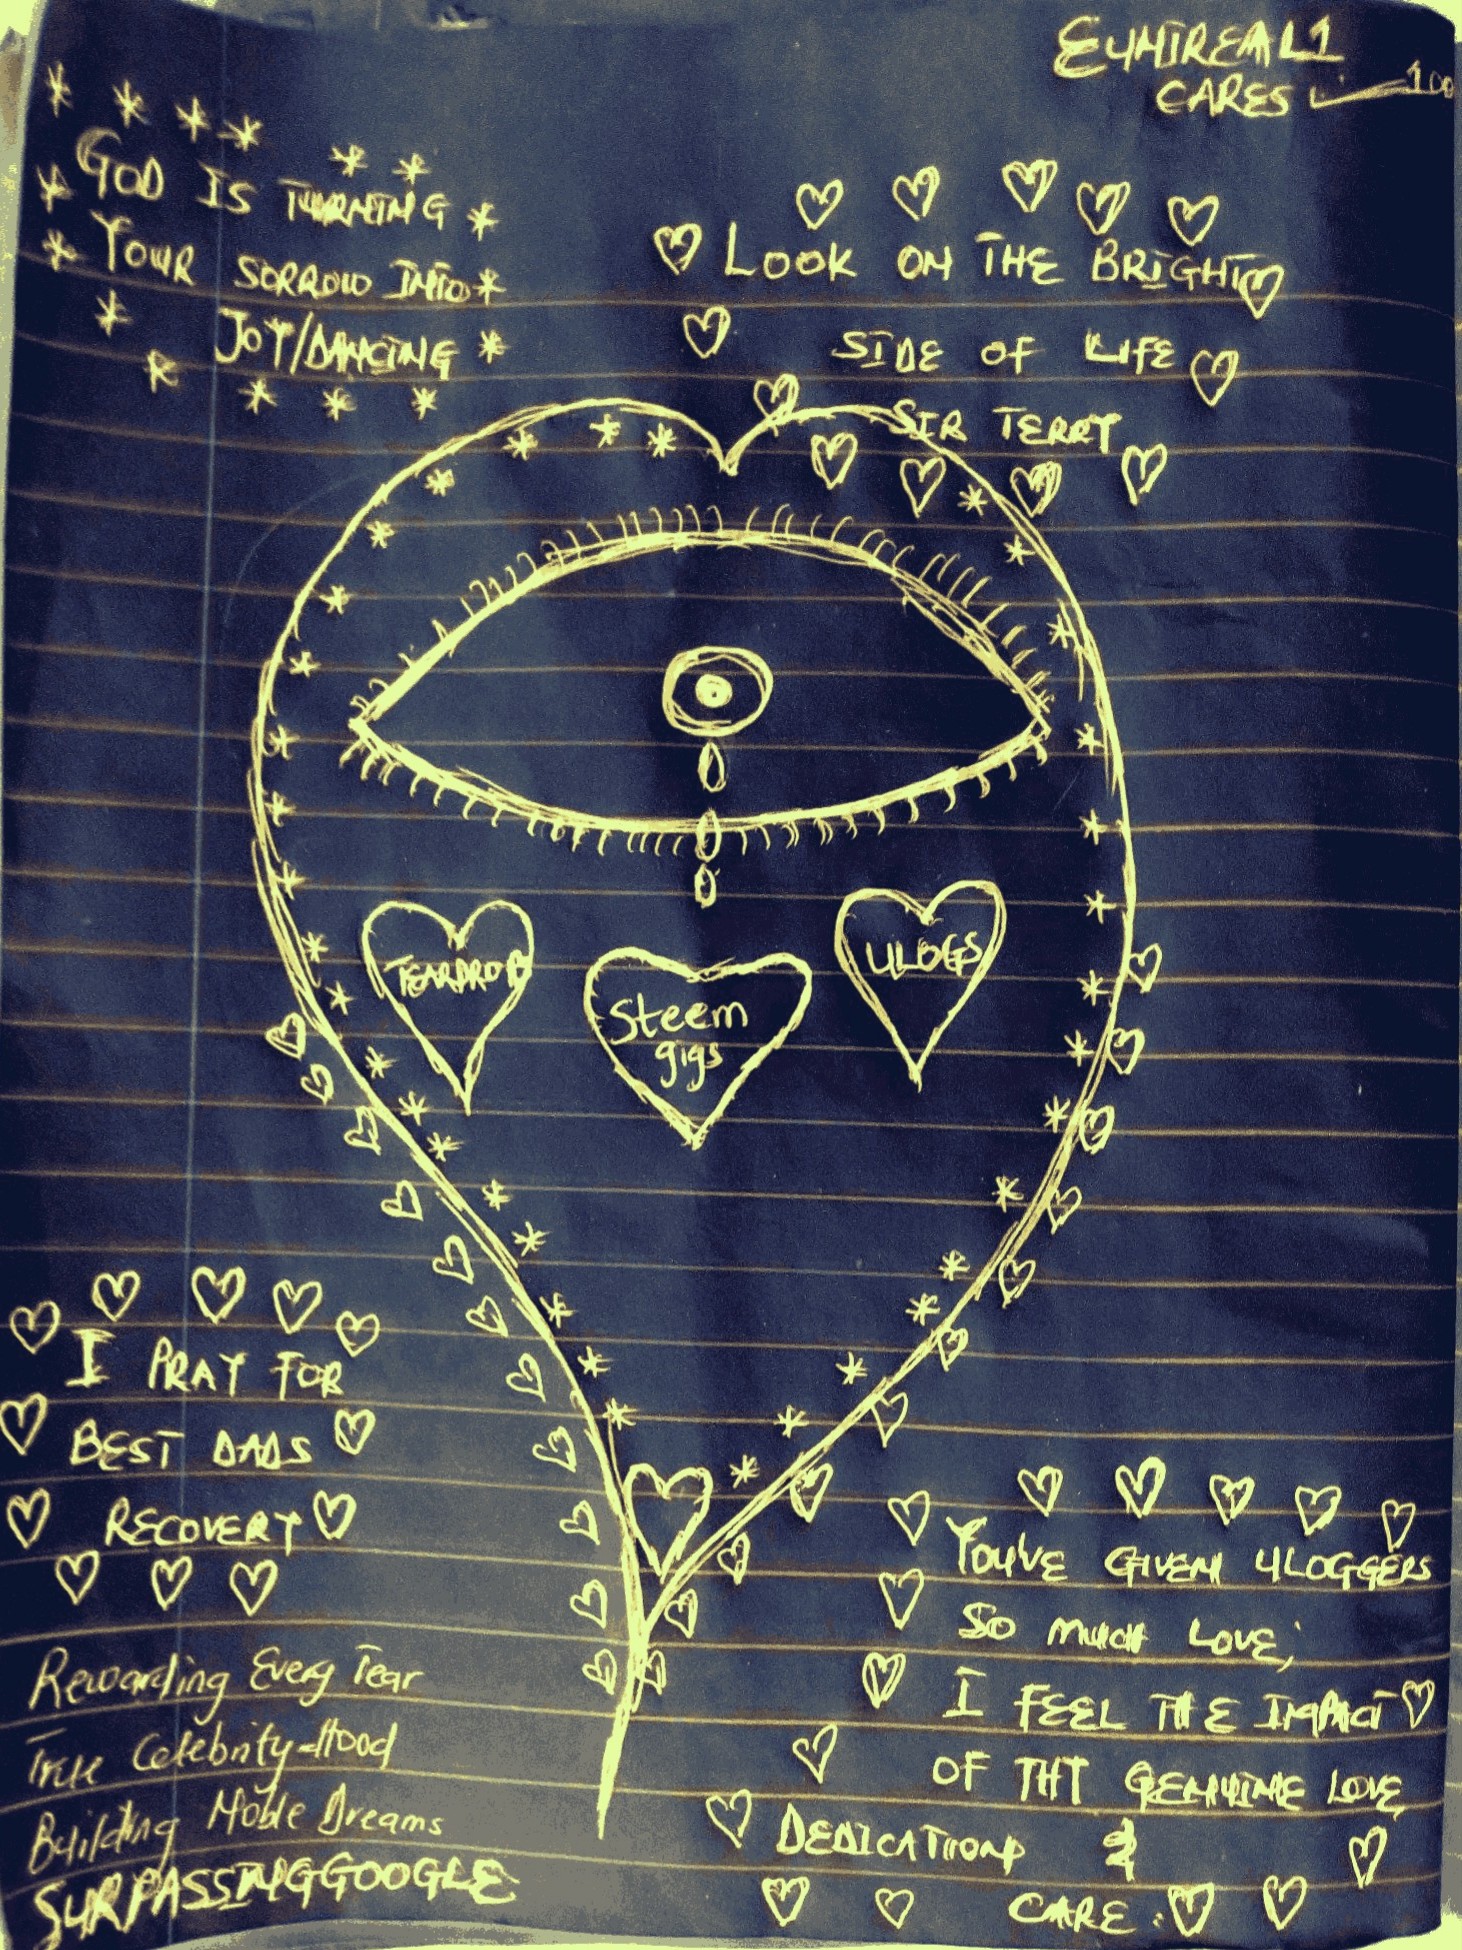 EUNIREAL1
CARES 100
GOD IS TURNING
YOUR SORROW INTO
JOY/DANCING
LOOK ON THE BRIGHT
SIDE OF LIFE
SIR TERRY
TEARDROP
Steem
gigs
ULOGS
I PRAY FOR
BEST DADS
RECOVERY
Rewarding Every Tear
True Celebrity-Hood
Building Noble Dreams
SURPASSINGGOOGLE
YOU'VE GIVEN ULOGGERS
SO MUCH LOVE,
I FEEL THE IMPACT
OF THT GENUINE LOVE,
DEDICATION &
CARE.